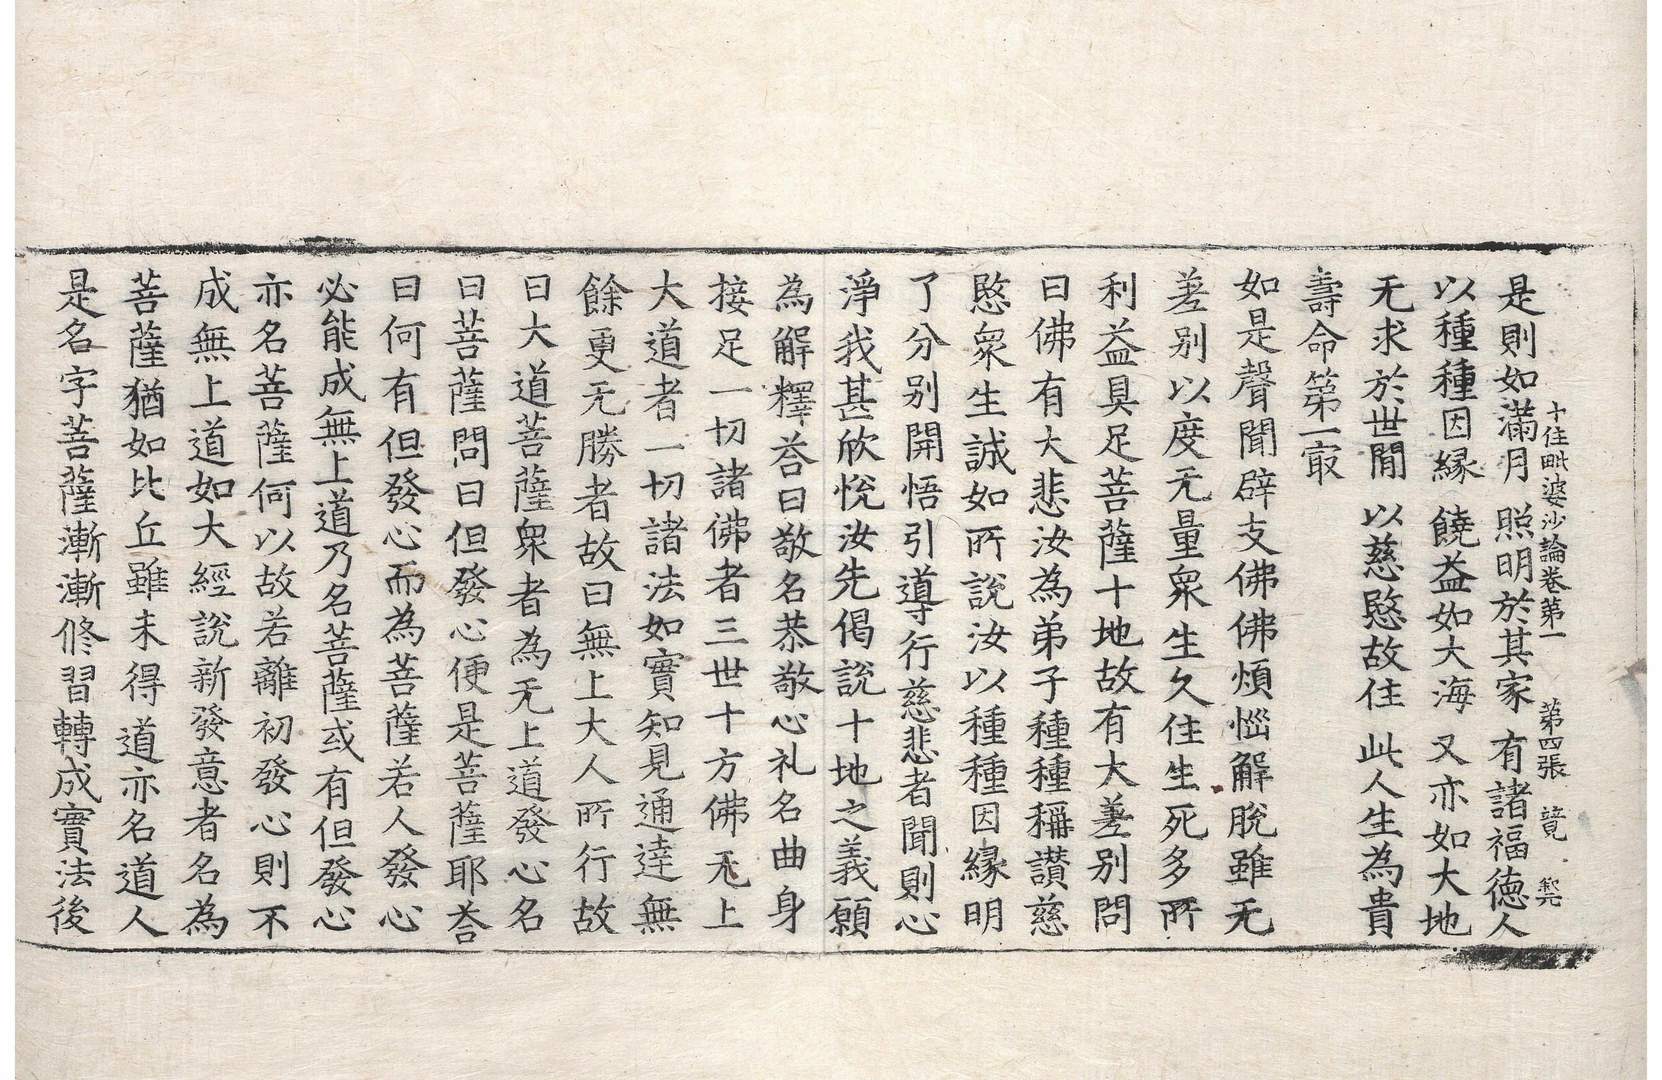 十住毗婆沙論卷第一　第四張　競
是則如滿月　照明於其家　有諸福德人
以種種因緣　饒益如大海　又亦如大地
无求於世閒　以慈愍故住　此人生為貴
壽命第一㝡
如是聲聞辟支佛佛煩惱解脫雖无
差別以度无量眾生久住生死多所
利益具足菩薩十地故有大差別問
曰佛有大悲汝為弟子種種稱讃慈
愍眾生誠如所說汝以種種因緣明
了分別開悟引導行慈悲者聞則心
淨我甚欣悅汝先偈說十地之義願
為解釋荅曰敬名恭敬心礼名曲身
接足一切諸佛者三世十方佛无上
大道者一切諸法如實知見通達無
餘更无勝者故曰無上大人所行故
曰大道菩薩眾者為无上道發心名
曰菩薩問曰但發心便是菩薩耶荅
曰何有但發心而為菩薩若人發心
必能成無上道乃名菩薩或有但發心
亦名菩薩何以故若離初發心則不
成無上道如大經說新發意者名為
菩薩猶如比丘雖未得道亦名道人
是名字菩薩漸漸修習轉成實法後